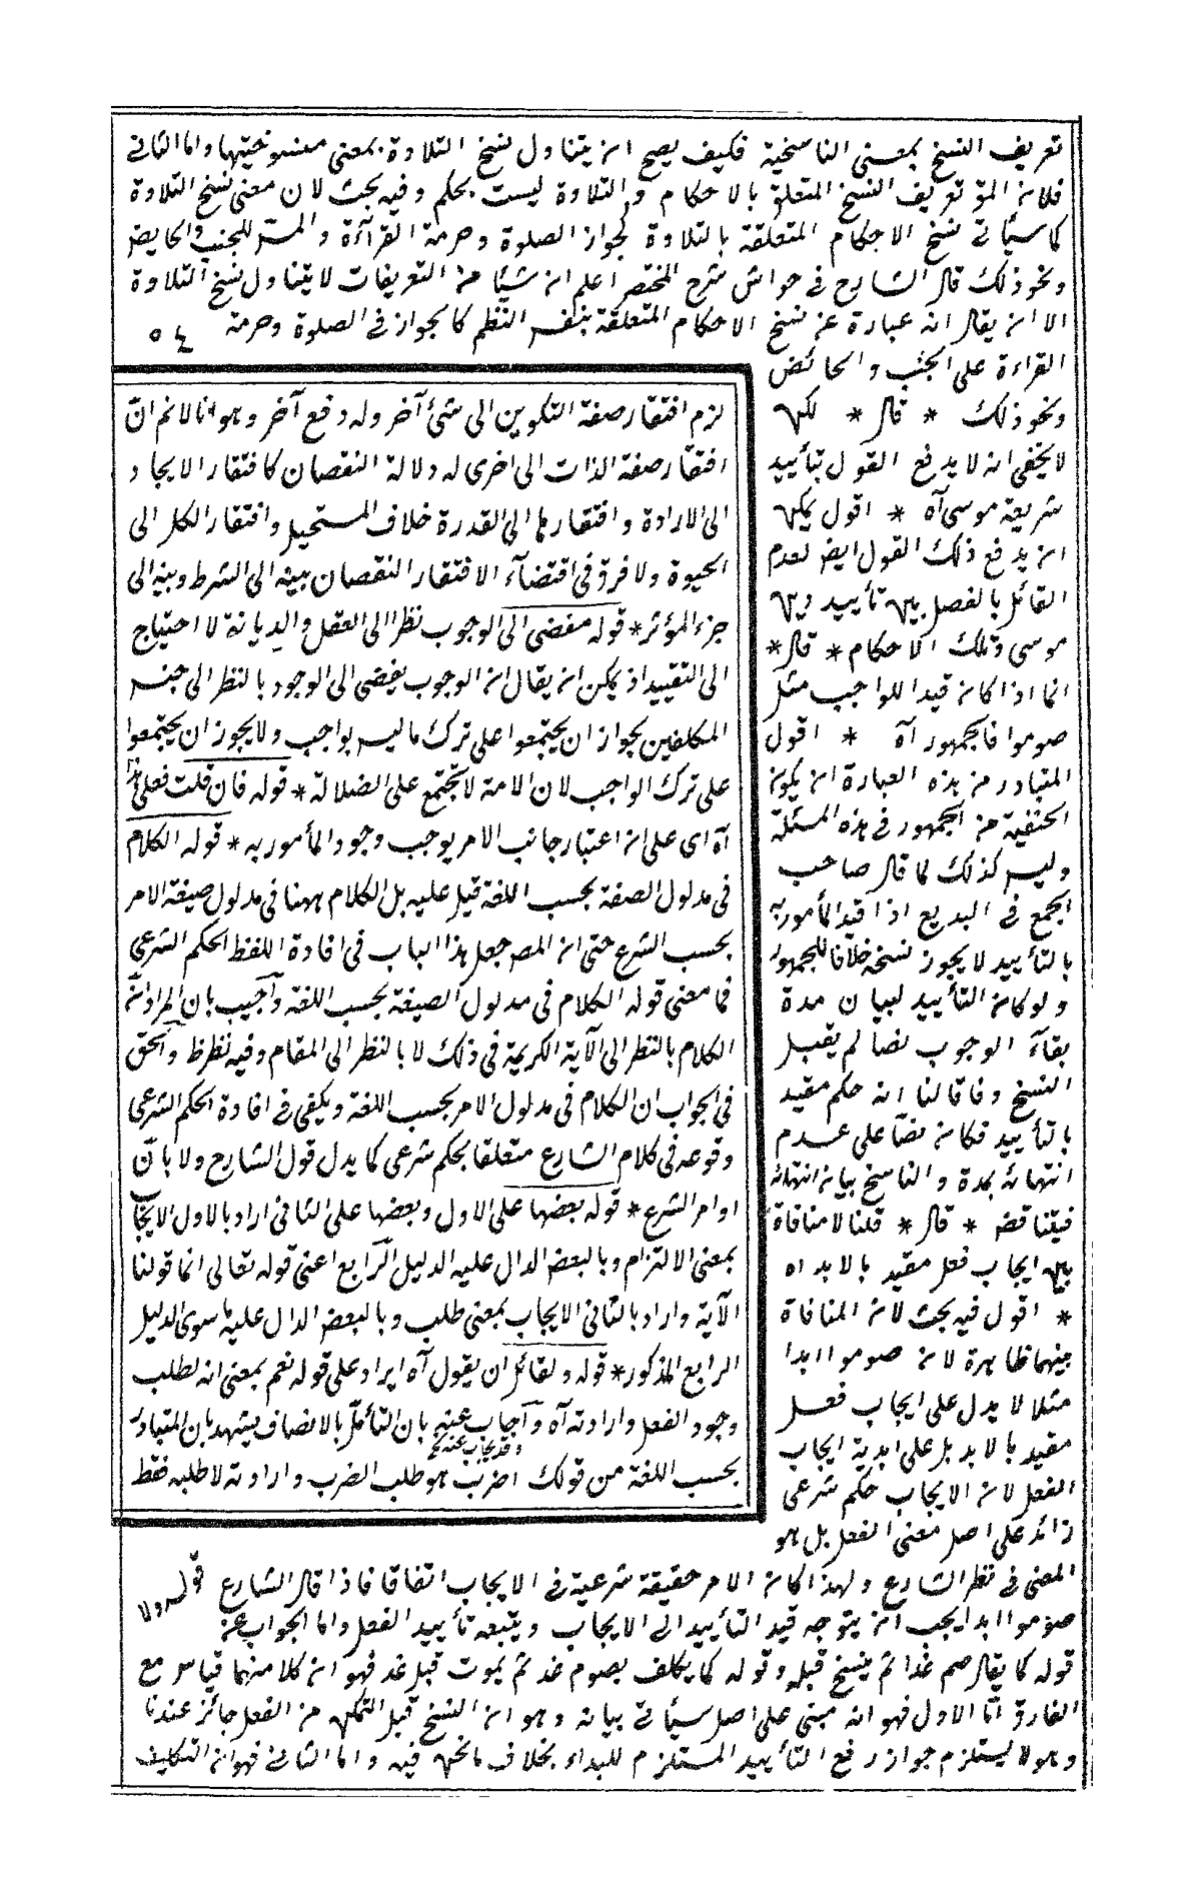 تعريف النسخ بمعنى الناسخية فكيف يصح ان يتناول نسخ التلاوة بمعنى منسوخيتها واما الثانى
فلان المق تعريف النسخ المتعلق بالاحكام والتلاوة ليست بحكم وفيه بحث لان معنى نسخ التلاوة
كما سيأتى نسخ الاحكام المتعلقة بالتلاوة كجواز الصلوة وحرمة القرآءة والمس للجنب والحايض
ونحو ذلك قال الشارح فى حواشى شرح المختصر اعلم ان شيئا من التعريفات لا يتناول نسخ التلاوة
الا ان يقال انه عبارة عن نسخ الاحكام المتعلقة بنفس النظم كالجواز فى الصلوة وحرمة
القراءة على الجنب والحائض
ونحو ذلك * قال * لكن
لا يخفى انه لا يدفع القول بتأبيد
شريعة موسى آه * اقول يمكن
ان يدفع ذلك القول ايض لعدم
القائل بالفصل بين تأبيد دين
موسى وتلك الاحكام * قال *
انما اذا كان قيدا للواجب مثل
صوموا فالجمهور آه * اقول
المتبادر من هذه العبارة ان يكون
الحنفية من الجمهور فى هذه المسئلة
وليس كذلك لما قال صاحب
الجمع فى البديع اذا قيد المأمور به
بالتأبيد لا يجوز نسخه خلافا للجمهور
ولو كان التأبيد لبيان مدة
بقآء الوجوب نصا لم يقبل
النسخ وفاقا لنا انه حكم مقيد
بالتأبيد فكان نصا على عدم
انتهائه بمدة والناسخ بيان انتهائه
فيتناقض * قال * قلنا لا منافاة
بين ايجاب فعل مقيد بالابد اه
* اقول فيه بحث لان المنافاة
بينهما ظاهرة لان صوموا ابدا
مثلا لا يدل على ايجاب فعل
مقيد بالابد بل على ابدية ايجاب
الفعل لان الايجاب حكم شرعى
زائد على اصل معنى الفعل بل هو
المعنى فى نظر الشارع ولهذا كان الامر حقيقة شرعية فى الايجاب اتفاقا فاذا قال الشارع
صوموا ابدا يجب ان يتوجه قيد التأبيد الى الايجاب ويتبعه تأبيد الفعل واما الجواب عن
قوله كما يقال صم غدا ثم ينسخ قبله وقوله كما يكلف بصوم غد ثم يموت قبل غد فهو ان كلا منهما قياس مع
الفارق اما الاول فهو انه مبنى على اصل سيأتى بيانه وهو ان النسخ قبل التمكن من الفعل جائز عندنا
وهو لا يستلزم جواز رفع التأبيد المستلزم للبداء بخلاف ما نحن فيه واما الثانى فهو ان التكليف
لزم افتقار صفة التكوين الى شئ آخر وله دفع آخر وهو انا لا نم ان
افتقار صفة الذات الى اخرى له دلالة النقصان كافتقار الايجاد
الى الارادة وافتقارها الى القدرة خلاف المستحيل وافتقار الكل الى
الحيوة ولا فرق فى اقتضآء الافتقار النقصان بينه الى الشرط وبينه الى
جزء المؤثر * قوله مفضى الى الوجوب نظرا الى العقل والديانة لا احتياج
الى التقييد اذ يمكن ان يقال ان الوجوب يفضى الى الوجود بالنظر الى جنس
المكلفين بجواز ان يجتمعوا على ترك ما ليس بواجب ولا يجوز ان يجتمعوا
على ترك الواجب لان الامة لا تجتمع على الضلالة * قوله فان قلت فعلى هذا
آه اى على ان اعتبار جانب الامر يوجب وجود المأمور به * قوله الكلام
فى مدلول الصفة بحسب اللغة قيل عليه بل الكلام ههنا فى مدلول صيغة الامر
بحسب الشرع حتى ان المص جعل هذا الباب فى افادة اللفظ الحكم الشرعى
فما معنى قوله الكلام فى مدلول الصيغة بحسب اللغة وآجيب بان المراد انه
الكلام بالنظر الى الآية الكريمة فى ذلك لا بالنظر الى المقام وفيه نظر ظ والحق
فى الجواب ان الكلام فى مدلول الامر بحسب اللغة ويكفى فى افادة الحكم الشرعى
وقوعه فى كلام الشارع متعلقا بحكم شرعى كما يدل قول الشارح ولا بان
اوامر الشرع * قوله بعضها على الاول وبعضها على الثانى اراد بالاول الايجاب
بمعنى الالتزام وبالبعض الدال عليه الدليل الرابع اعنى قوله تعالى انما قولنا
الآية واراد بالثانى الايجاب بمعنى طلب وبالبعض الدال عليه ما سوى الدليل
الرابع المذكور * قوله ولقائل ان يقول آه ايراد على قوله نعم بمعنى انه لطلب
وجود الفعل وارادته آه وآجاب عنه بان التأمل بالانصاف يشهد بان المتبادر
وقد يجاب عنه
بحسب اللغة من قولك اضرب هو طلب الضرب وارادته لا طلبه فقط
قوله ولا